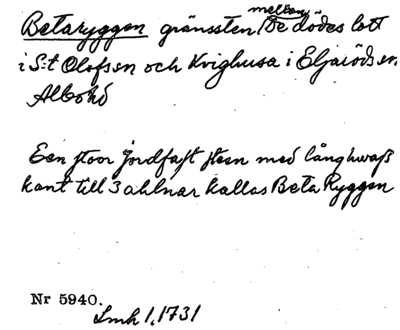 Betaryggen gränssten mellan De dödes lott
i S:t Olofs sn och Kvighusa i Eljaröds sn.
Albo hd
Een stoor jordfast steen med långhwass
kant till 3 ahlnar kallas Beta Ryggen
Nr 5940.
Lmh 1,1731